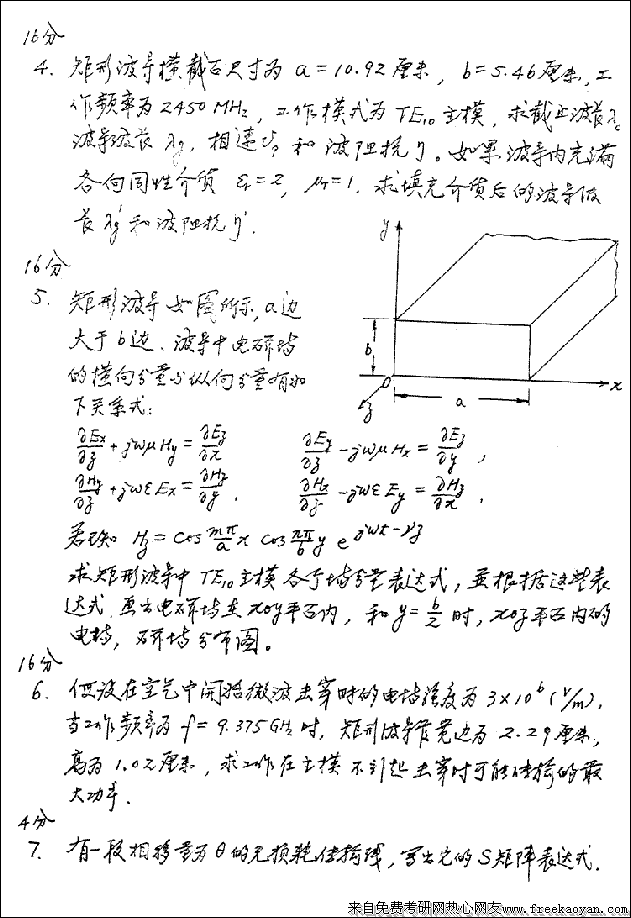 16分
4. 矩形波导横截面尺寸为 a = 10.92 厘米, b = 5.46 厘米, 工
作频率为 2450 MHz, 工作模式为 TE10 主模, 求截止波长 λc
波导波长 λg, 相速 Vp 和波阻抗 η。如果波导内充满
各向同性介质 εr = 2, μr = 1, 求填充介质后的波导波
长 λg' 和波阻抗 η'.
16分
5. 矩形波导如图所示, a边
大于 b 边. 波导中电磁场
的横向分量与纵向分量有如
下关系式:
y
b
0
a
x
z
∂Ex/∂z + jωμHy = ∂Ez/∂x ∂Ey/∂z - jωμHx = ∂Ez/∂y,
∂Hy/∂z + jωεEx = ∂Hz/∂y, ∂Hx/∂z - jωεEy = ∂Hz/∂x,
若已知 Hz = cos mπ/a x cos nπ/b y e^(jωt - γz)
求矩形波导中 TE10 主模各个场分量表达式, 并根据这些表
达式画出电磁场在 xoy 平面内, 和 y = b/2 时, xoz 平面内的
电场, 磁场分布图。
16分
6. 假设在空气中开始微波击穿时的电场强度为 3×10^6 (V/m).
当工作频率为 f = 9.375 GHz 时, 矩形波导宽边为 2.29 厘米,
高为 1.02 厘米, 求工作在主模不引起击穿时可能传输的最
大功率.
4分
7. 有一段相移量为 θ 的无损耗传输线, 写出它的 S 矩阵表达式.
来自免费考研网热心网友/www.freekaoyan.com